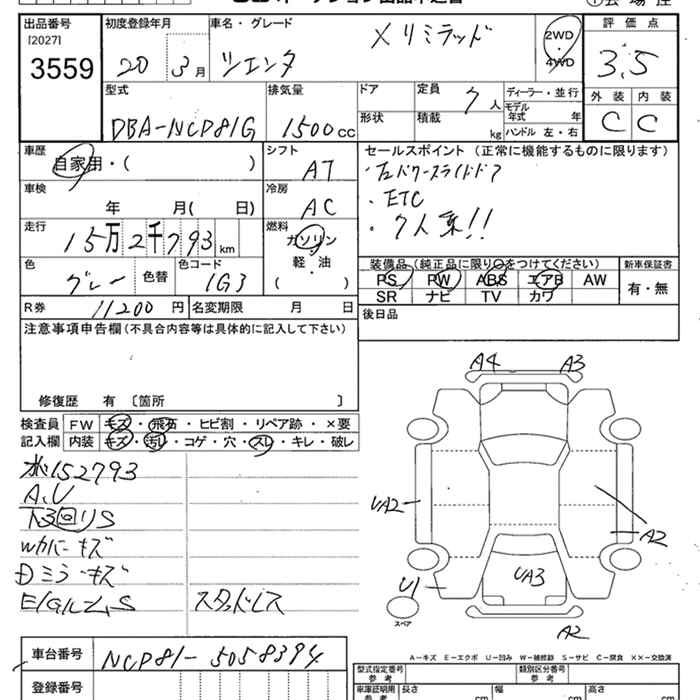 出品番号 初度登録年月 車名・グレード 評価点
[2027]
3559 20 3月 シエンタ Xリミテッド 2WD 4WD 3.5
型式 排気量 ドア 定員 7人 ディーラー・並行 外装 内装
DBA-NCP81G 1500cc 形状 積載 kg モデル年式 年 C C
ハンドル 左・右
車歴 シフト セールスポイント (正常に機能するものに限ります)
自家用・( ) AT ・左パワースライドドア
車検 冷房 ・ETC
年 月( 日) AC ・7人乗!!
走行 燃料
15万2千793km ガソリン
装備品(純正品に限り○をつけてください) 新車保証書
色 色替 色コード 軽・油 PS PW ABS エアB AW 有・無
グレー 1G3 ( ) SR ナビ TV カワ
R券 11200円 名変期限 月 日 後日品
注意事項申告欄(不具合内容等は具体的に記入して下さい)
修復歴 有 [箇所 ]
A4 A3
検査員 FW キズ・飛石・ヒビ割・リペア跡・×要
記入欄 内装 キズ・汚れ・コゲ・穴・スレ・キレ・破レ
152793
A,U
下回りS
Wカバーキズ
ミラーキズ
スタッドレス
UA2 A2
U1 UA3
スペア A2
A-キズ E-エクボ U-凹み W-補修跡 S-サビ C-腐食 ××-交換済
車台番号 NCP81-5058394
型式指定番号 参考 類別区分番号 参考
登録番号 車庫証明用 参考 長さ cm 幅 cm 高さ cm